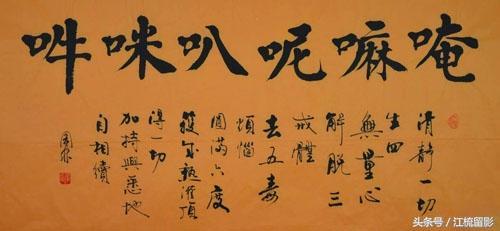 唵嘛呢叭咪吽
清靜一切
生四
無量心
解脫三
戒體
去五毒
煩惱
圓滿六度
獲成熟灌頂
得一切
加持與悉地
自相續
头条号 / 江梳留影